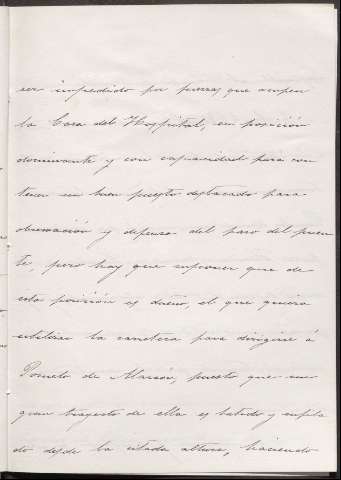 ser impedido por fuerzas, que ocupen
la Casa del Hospital, en posición
dominante y con capacidad para con
tener un buen puesto destacado para
observación y defensa del paso del puen
te, pero hay que suponer que de
esta posición es dueño, el que quiera
utilizar la carretera para dirigirse á
de puesto que un
gran trayecto de ella es batido y enfila
do desde la citada altura, haciendo